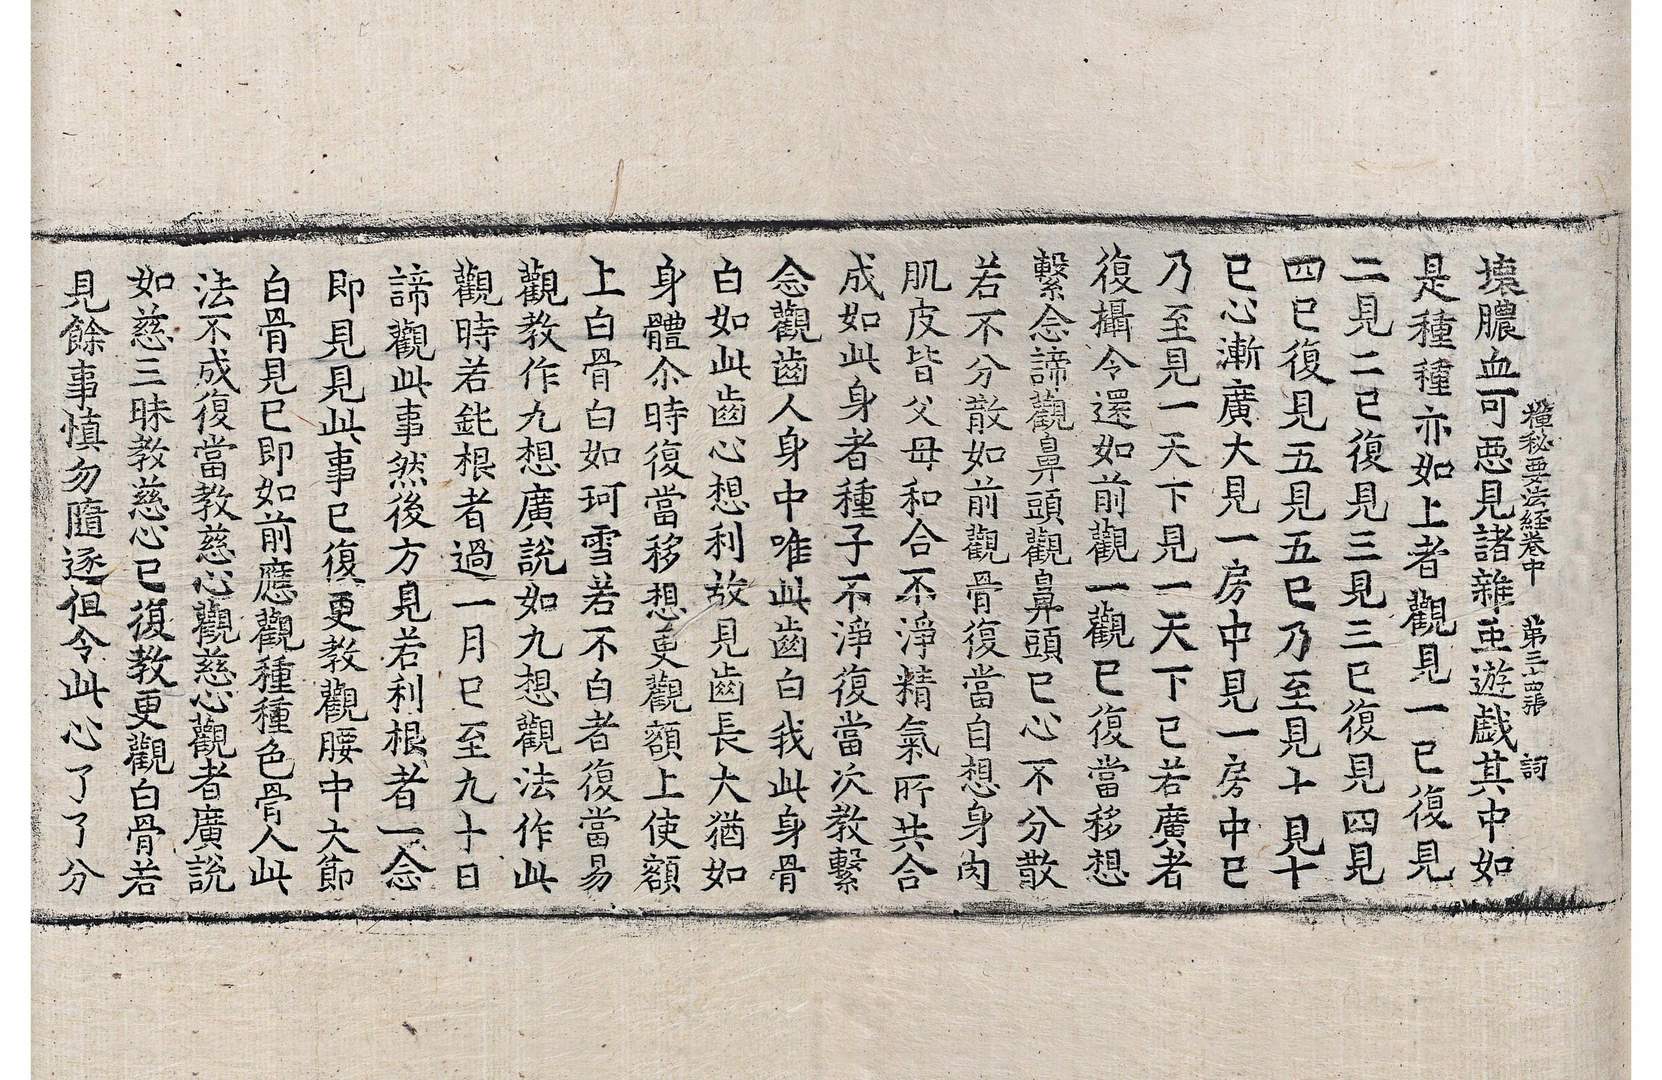 壞膿血可惡見諸雜虫遊戯其中如
種秘要法經卷中　第三十四張　詞
是種種亦如上者觀見一已復見
二見二已復見三見三已復見四見
四已復見五見五已乃至見十見十
已心漸廣大見一房中見一房中已
乃至見一天下見一天下已若廣者
復攝令還如前觀一觀已復當移想
繫念諦觀鼻頭觀鼻頭已心不分散
若不分散如前觀骨復當自想身肉
肌皮皆父母和合不淨精氣所共合
成如此身者種子不淨復當次教繫
念觀齒人身中唯此齒白我此身骨
白如此齒心想利故見齒長大猶如
身體尒時復當移想更觀額上使額
上白骨白如珂雪若不白者復當易
觀教作九想廣說如九想觀法作此
觀時若鈍根者過一月已至九十日
諦觀此事然後方見若利根者一念
即見見此事已復更教觀腰中大節
白骨見已即如前應觀種種色骨人此
法不成復當教慈心觀慈心觀者廣說
如慈三昧教慈心已復教更觀白骨若
見餘事慎勿隨逐徂令此心了了分